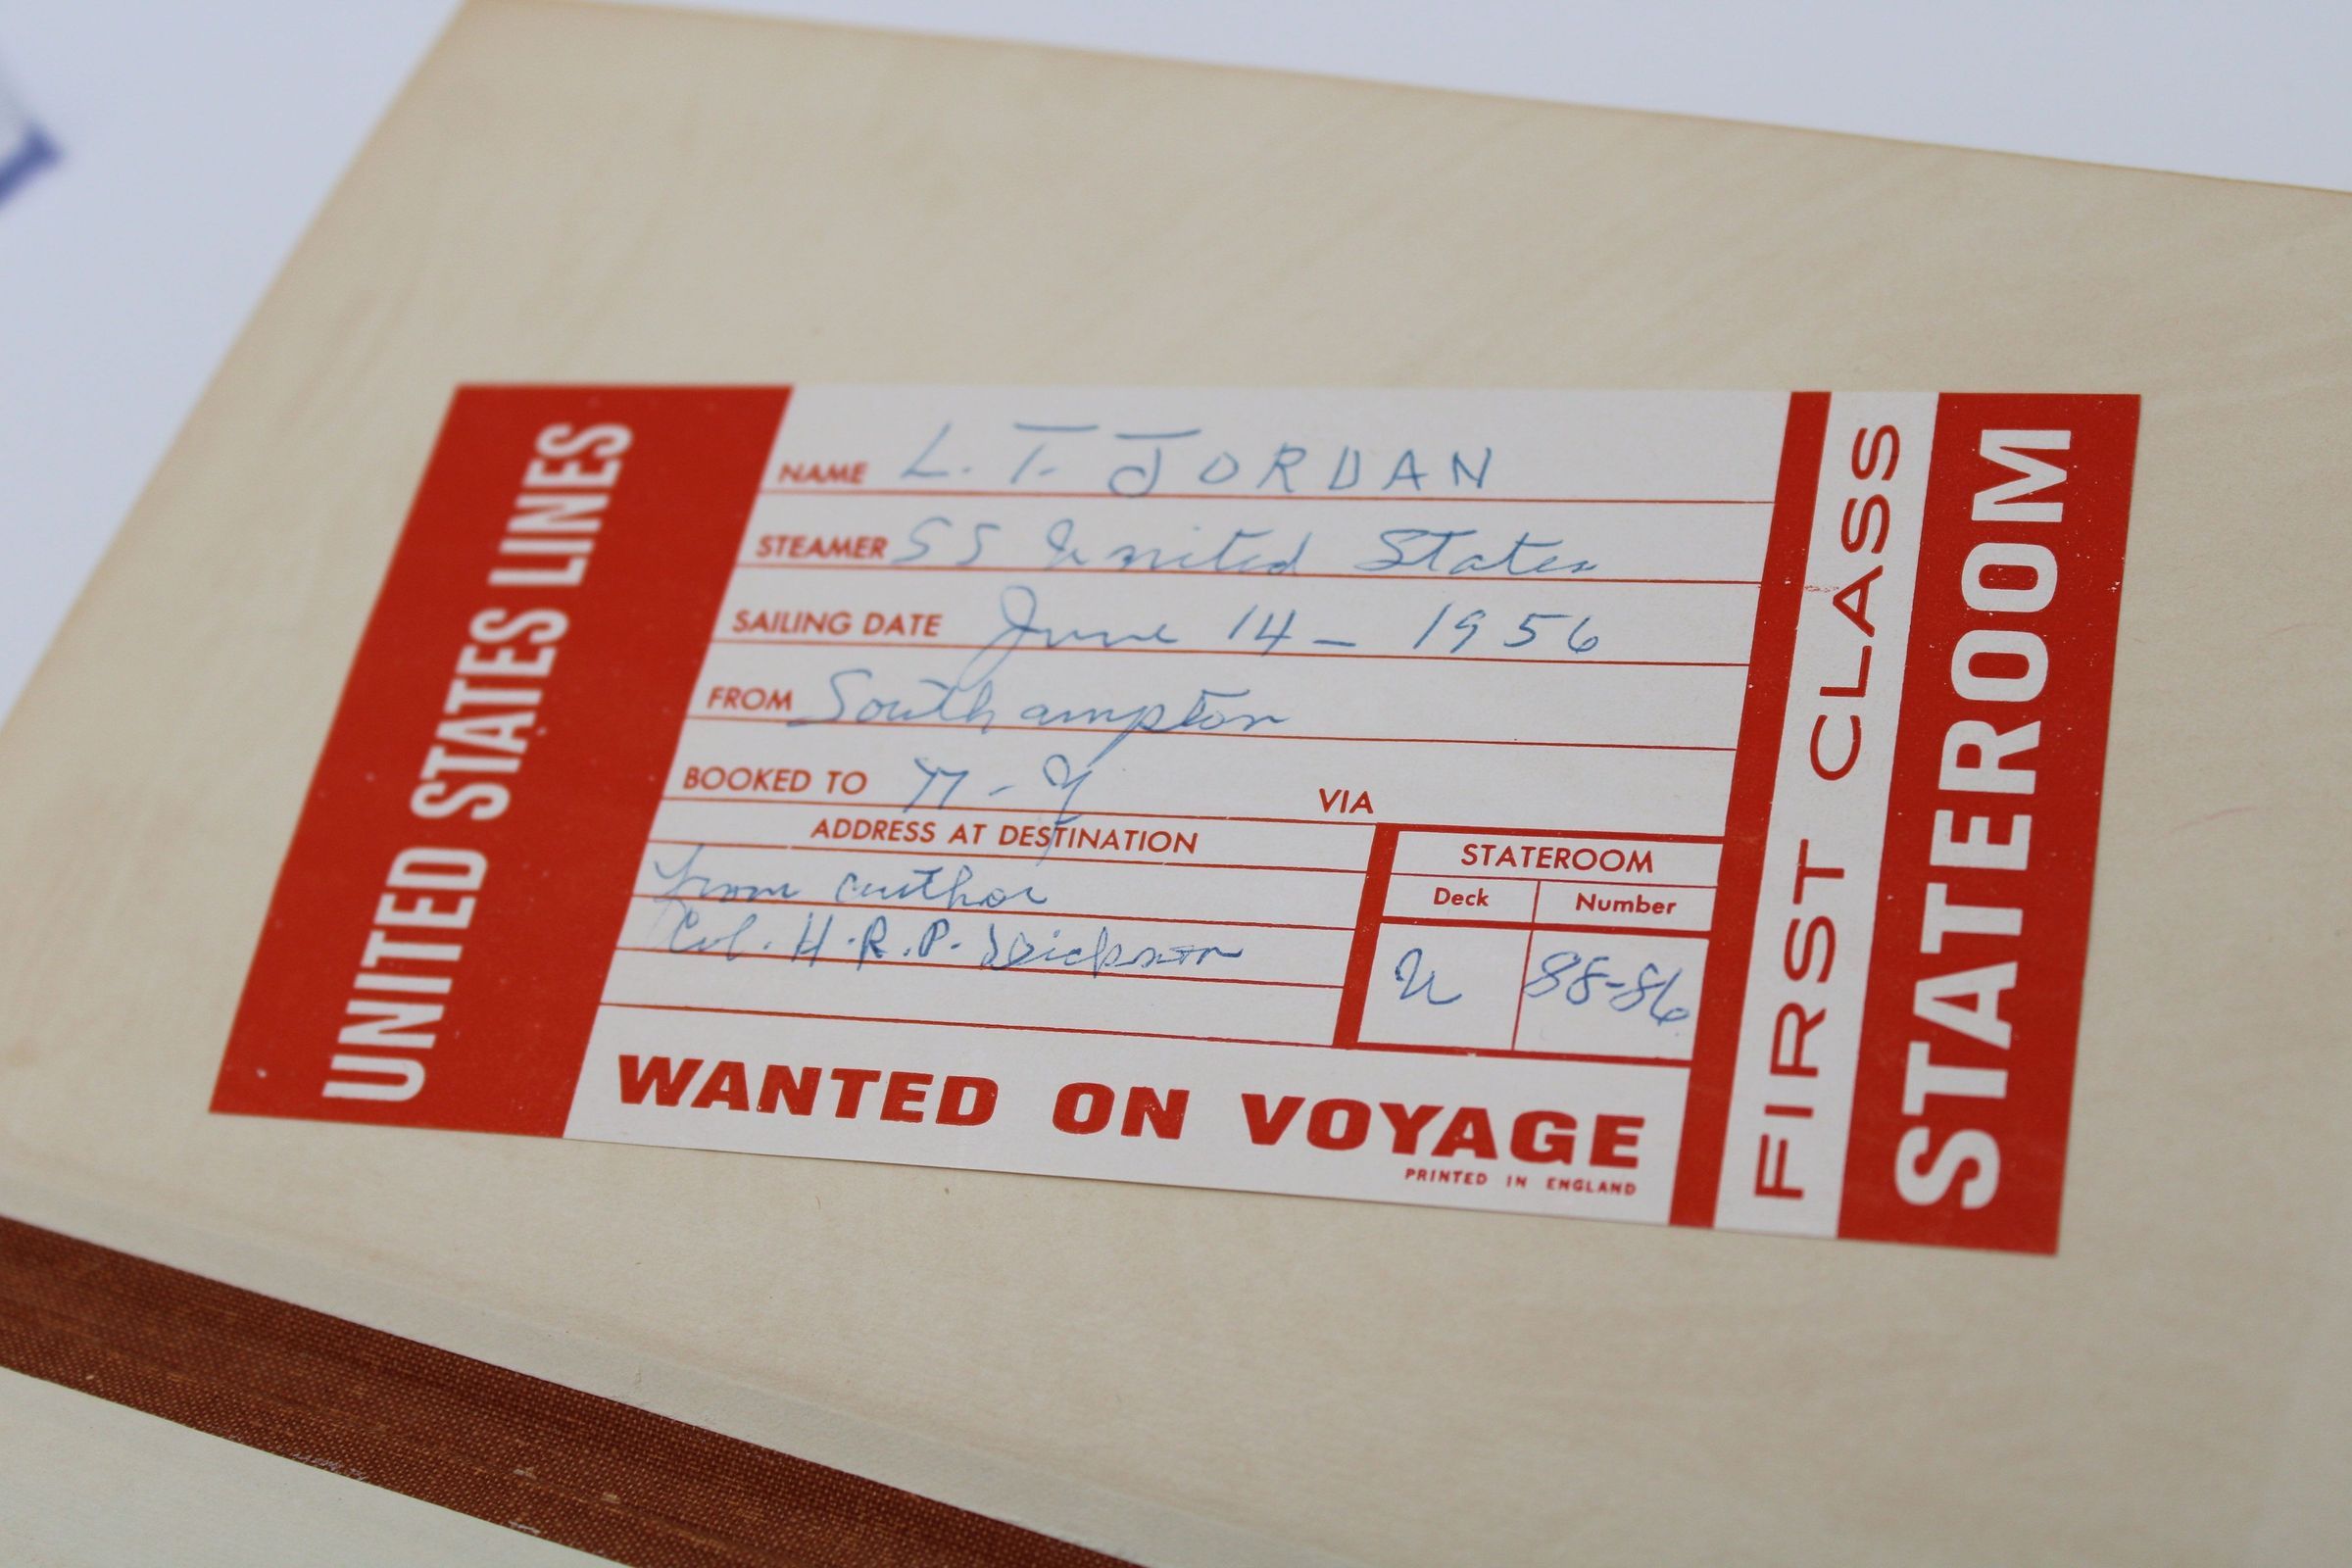 UNITED STATES LINES
NAME L. T. JORDAN
STEAMER SS United States
SAILING DATE June 14 - 1956
FROM Southampton
BOOKED TO N-Y VIA
ADDRESS AT DESTINATION
From author
Col. H.R.P. Dickson
STATEROOM
Deck Number
U 88-86
WANTED ON VOYAGE
PRINTED IN ENGLAND
FIRST CLASS
STATEROOM